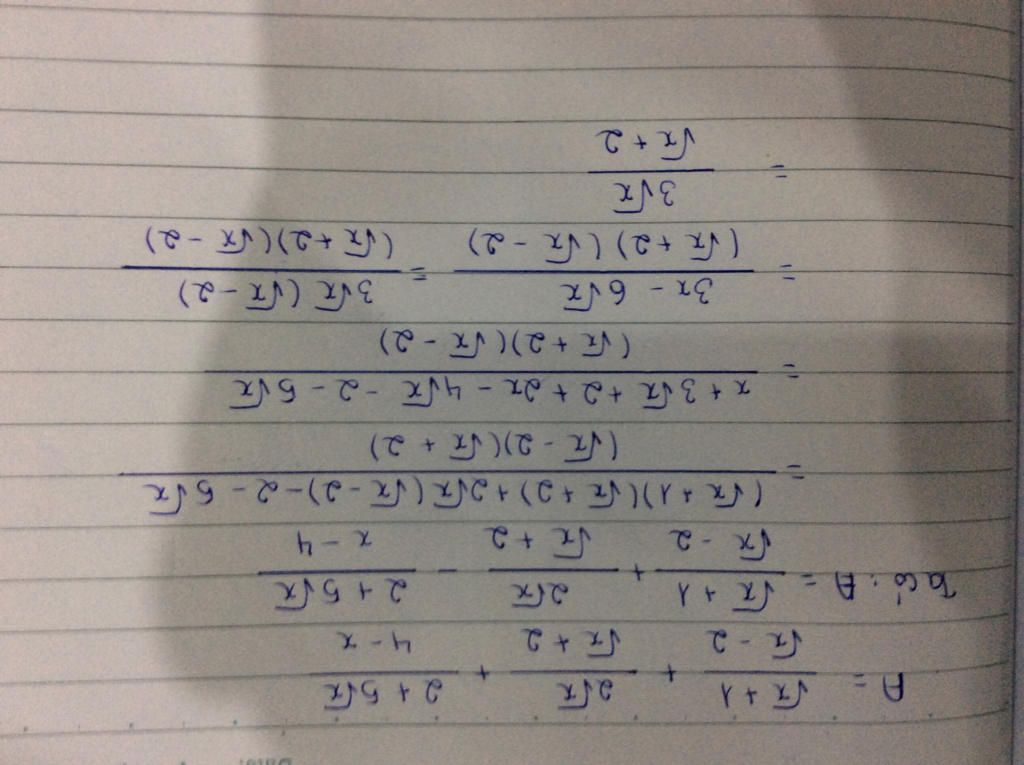 Date:
A = (√x + 1)/(√x - 2) + 2√x/(√x + 2) + (2 + 5√x)/(4 - x)
Ta có: A = (√x + 1)/(√x - 2) + 2√x/(√x + 2) - (2 + 5√x)/(x - 4)
= ((√x + 1)(√x + 2) + 2√x(√x - 2) - 2 - 5√x)/((√x - 2)(√x + 2))
= (x + 3√x + 2 + 2x - 4√x - 2 - 5√x)/((√x + 2)(√x - 2))
= (3x - 6√x)/((√x + 2)(√x - 2)) = (3√x(√x - 2))/((√x + 2)(√x - 2))
= 3√x/(√x + 2)